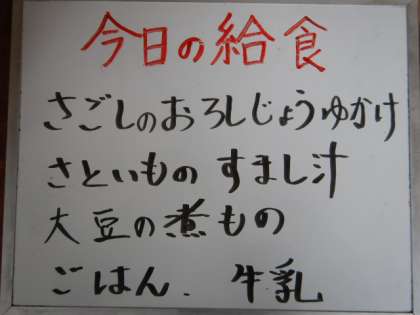 今日の給食
さごしのおろしじょうゆかけ
さといものすまし汁
大豆の煮もの
ごはん. 牛乳